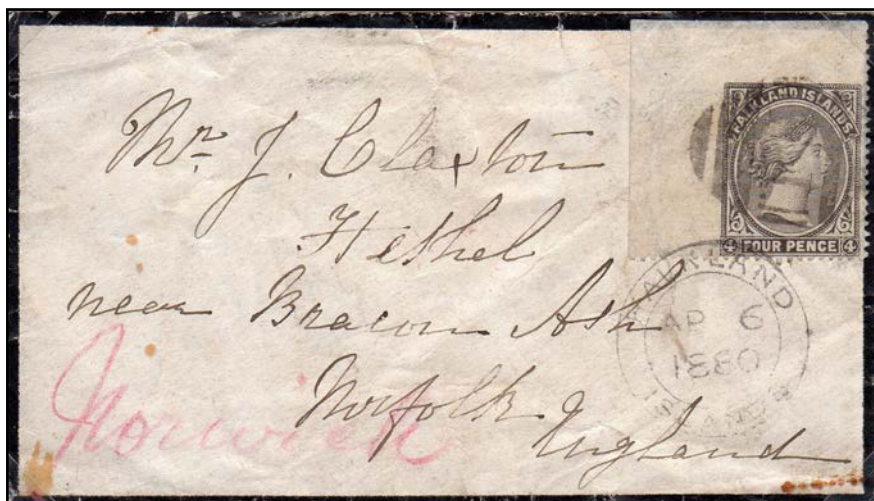 FALKLAND ISLANDS
4 FOUR PENCE 4
Mr. J. Claxton
Hethel
near Bracon Ash
Norfolk
England
Norwich
FALKLAND
AP 6
1880
ISLANDS